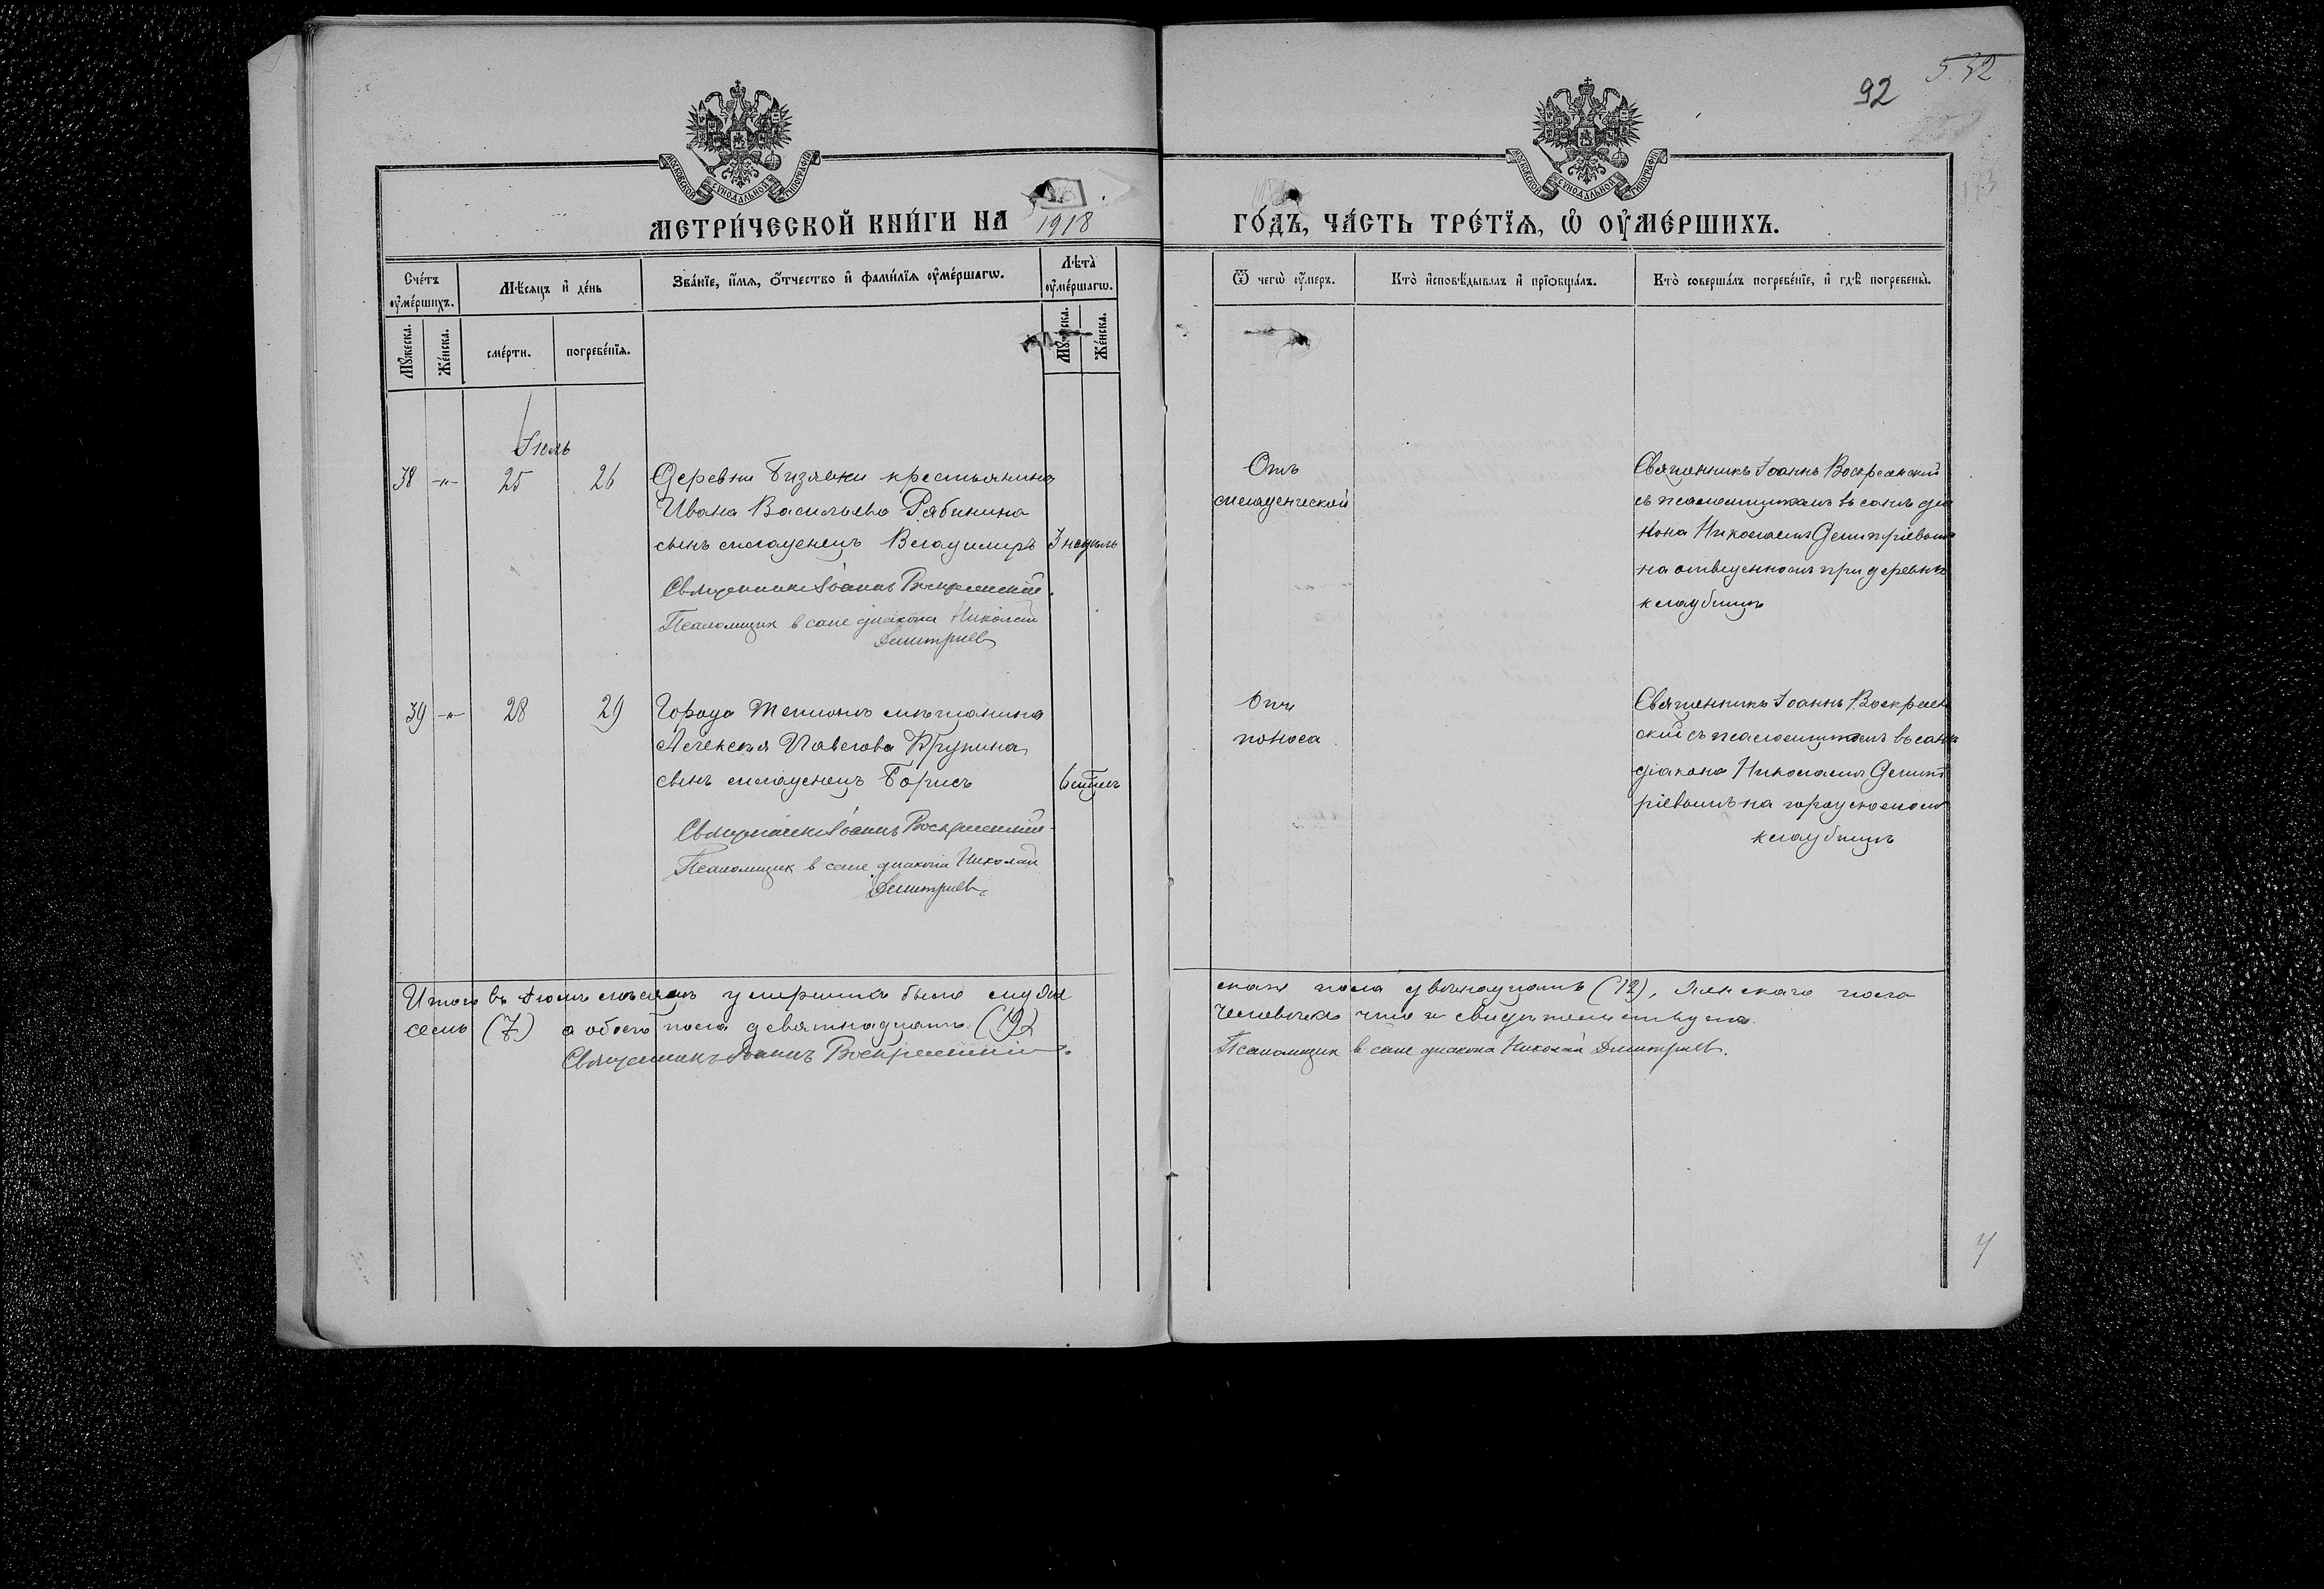 92
5.32
МОСКОВСКОЙ СѴНОДАЛЬНОЙ ТИПОГРАФІИ
МОСКОВСКОЙ СѴНОДАЛЬНОЙ ТИПОГРАФІИ
МЕТРИ́ЧЕСКОЙ КНИ́ГИ НА 1918
ГО́ДЪ, ЧА́СТЬ ТРЕ́ТЇѦ, Ѡ҆ ОУ҆МЕ́РШИХЪ.
Сче́тъ оу҆ме́ршихъ.
Мѣ́сяцъ и҆ де́нь
Зва́нїе, и҆́мѧ, ѻ҆́тчество и҆ фами́лїѧ оу҆ме́ршагѡ.
Лѣта̀ оу҆ме́ршагѡ.
Ѿ чегѡ̀ оу҆́меръ.
Кто̀ и҆сповѣ́дывалъ и҆ прїѻбща́лъ.
Кто̀ соверша́лъ погребе́нїе, и҆ гдѣ̀ погребены̀.
Мꙋ́жеска.
Же́нска.
сме́рти.
погребе́нїѧ.
Мꙋ́жеска.
Же́нска.
Іюль
38 -"- 25 26 Деревни Бизяевки крестьянина
Ивана Васильева Рябинина
сынъ младенецъ Владимиръ 3 недѣль
Священникъ Іоаннъ Воскресенскій.
Псаломщик в сане диакона Николай
Димитриев
Отъ
младенческой
Священникъ Іоаннъ Воскресенский
съ псаломщикомъ въ санѣ діа
кона Николаемъ Димитріевымъ
на отведенномъ при деревнѣ
кладбищѣ
39 -"- 28 29 Города мѣщанина
Алексѣя Павлова
сынъ младенецъ Борисъ
Священникъ Іоаннъ Воскресенский
Псаломщик в сане диакона Николай
Димитриев.
Отъ
поноса
Священникъ Іоаннъ Воскресен
ский съ псаломщикомъ въ санѣ
діакона Николаемъ Димит
ріевымъ на городскомъ
кладбищѣ
Итого въ Іюлѣ мѣсяцѣ умершихъ было муже
скаго пола двѣнадцать (12), женскаго пола
семь (7) а обоего пола девятнадцать (19)
человѣкъ, что и свидѣтельствуемъ.
Священникъ Іоаннъ Воскресенский.
Псаломщик в сане диакона Николай Димитриев.